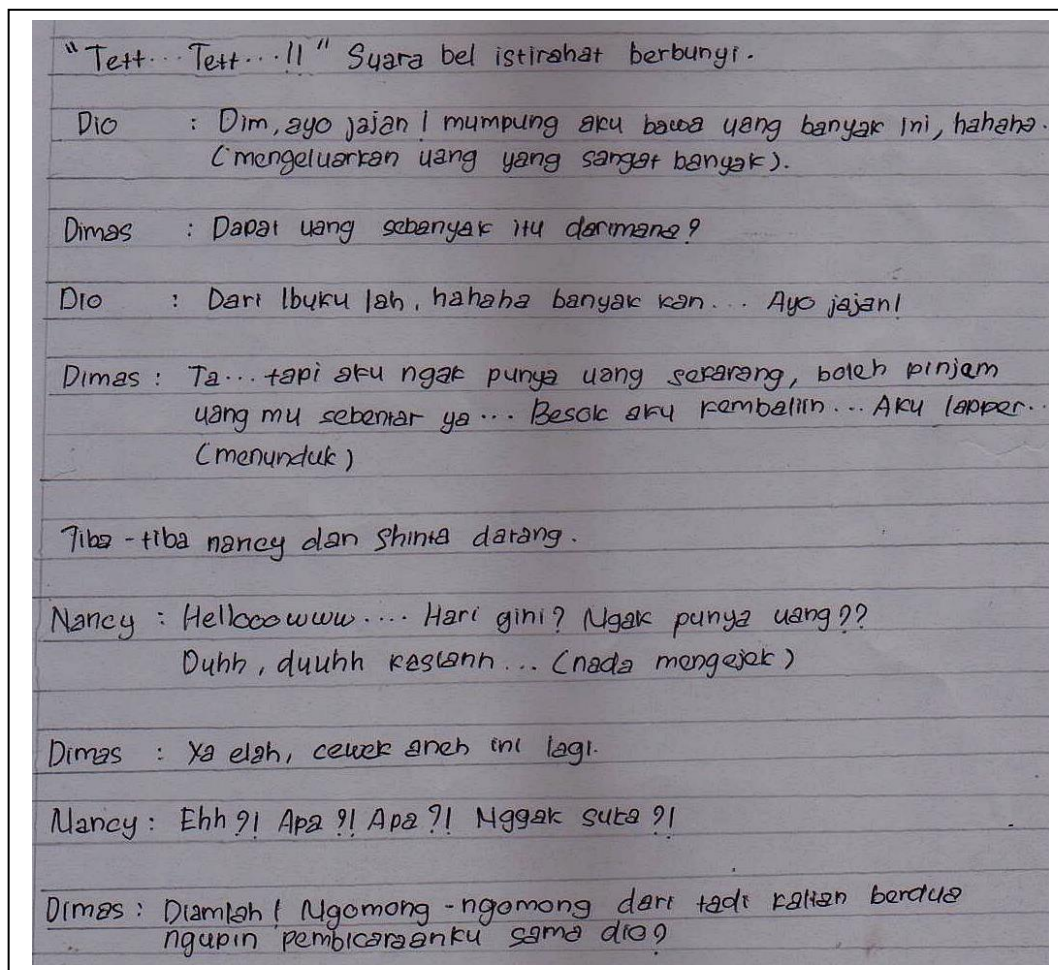 "Tett... Tett...!!" Suara bel istirahat berbunyi.
Dio : Dim, ayo jajan! mumpung aku bawa uang banyak ini, hahaha.
(mengeluarkan uang yang sangat banyak).
Dimas : Dapat uang sebanyak itu darimana?
Dio : Dari Ibuku lah, hahaha banyak kan... Ayo jajan!
Dimas : Ta... tapi aku ngak punya uang sekarang, boleh pinjam
uang mu sebentar ya... Besok aku kembaliin... Aku lapper..
(menunduk)
Tiba-tiba nancy dan Shinta datang.
Nancy : Hellooowww.... Hari gini? Ngak punya uang??
Duhh, duuhh kasiann... (nada mengejek)
Dimas : Ya elah, cewek aneh ini lagi.
Nancy : Ehh?! Apa?! Apa?! Nggak suka?!
Dimas : Diamlah! Ngomong-ngomong dari tadi kalian berdua
ngupin pembicaraanku sama dio?